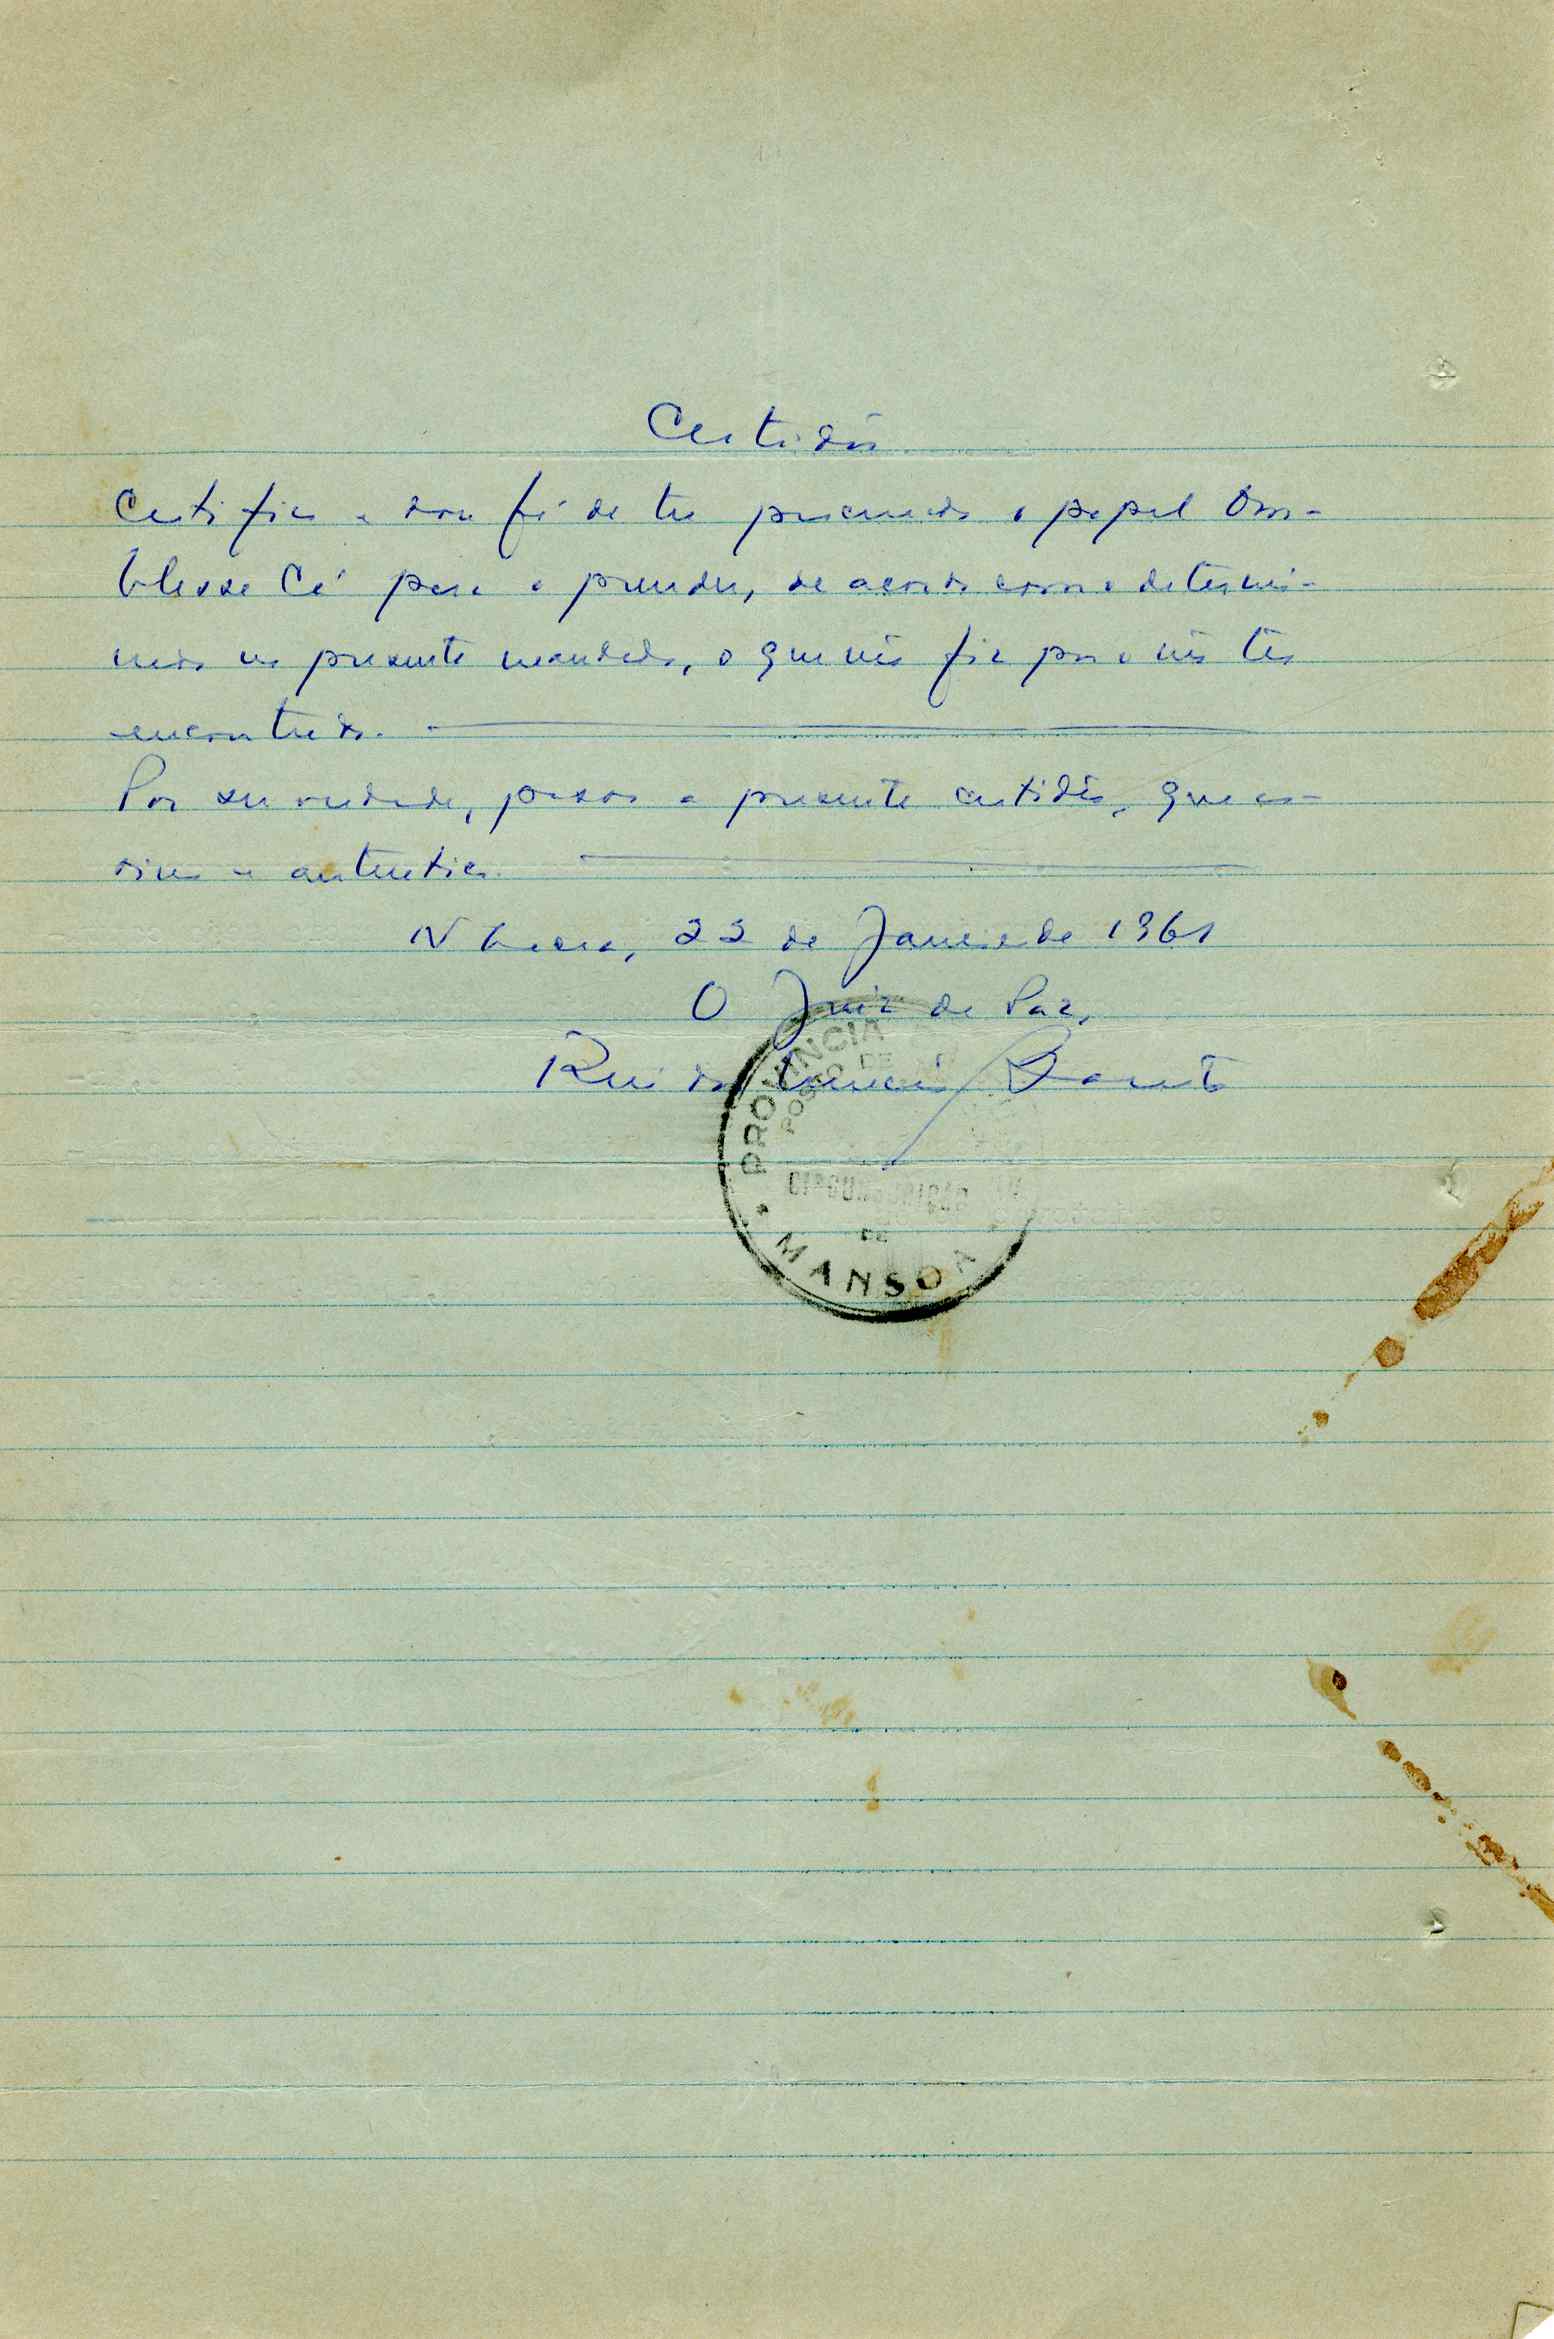 Certidão
Certifico e dou fé de ter procurado o papel Om-
blesse Cá para o prender, de acordo com o determi-
nado no presente mandado, o que não fiz por o não ter
encontrado.
Por ser verdade, passo a presente certidão, que as-
sino e autentico.
Nhacra, 22 de Janeiro de 1961
O Juiz de Paz,
Rui da
PROVINCIA
POSTO DE
CIRCUNSCRIÇÃO
DE
MANSOA